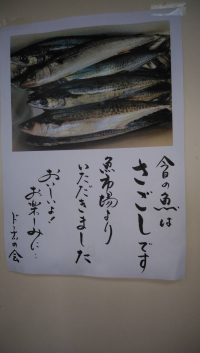 今日の魚は
さごしです
魚市場より
いただきました
おいしいよ！
お楽しみに…